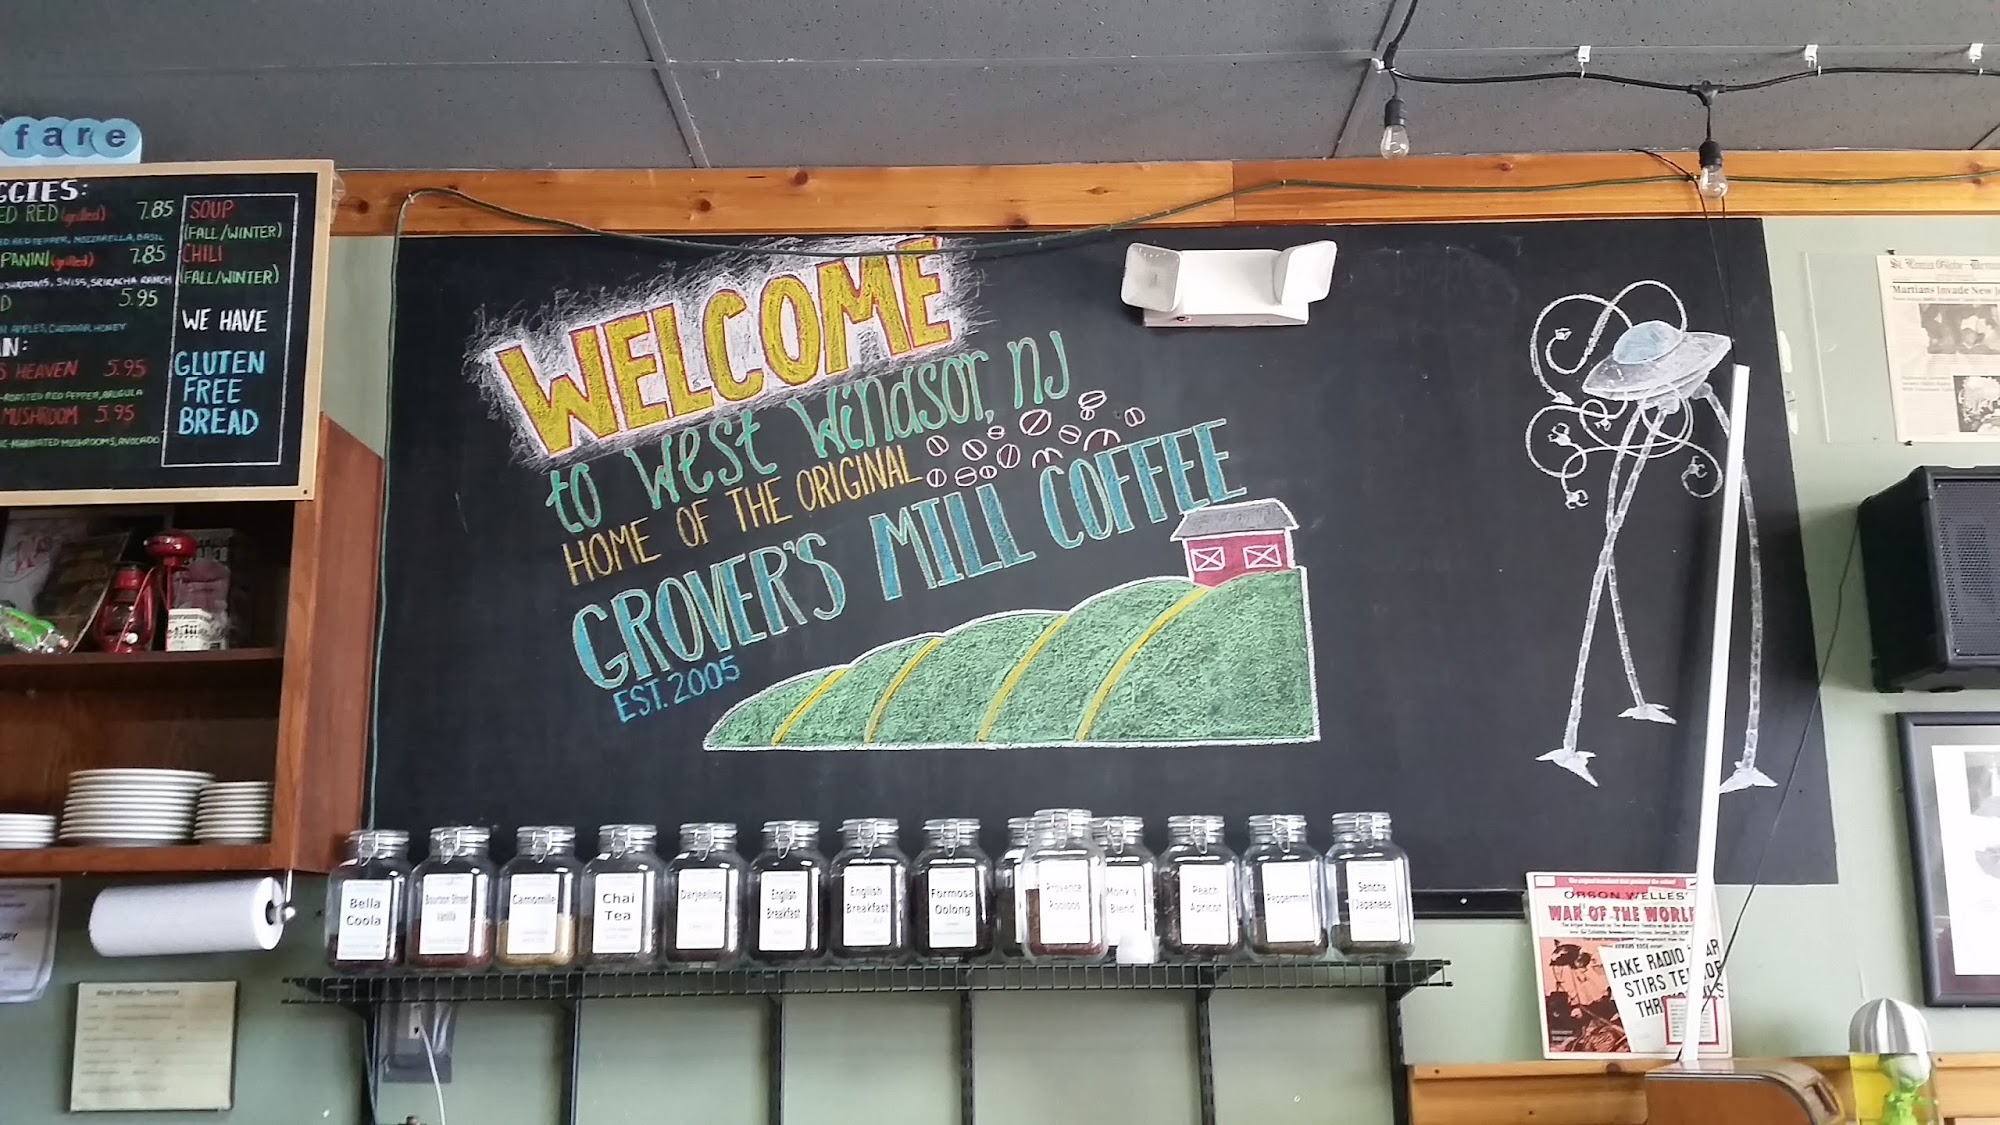 fare
GGIES:
ED RED (grilled) 7.85
ED RED PEPPER, MOZZARELLA, BASIL
PANINI (grilled) 7.85
MUSHROOMS, SWISS, SRIRACHA RANCH
D 5.95
APPLES, CHEDDAR, HONEY
AN:
S HEAVEN 5.95
-ROASTED RED PEPPER, ARUGULA
MUSHROOM 5.95
-MARINATED MUSHROOMS, AVOCADO
SOUP
(FALL/WINTER)
CHILI
(FALL/WINTER)
WE HAVE
GLUTEN
FREE
BREAD
WELCOME
to West Windsor, NJ
HOME OF THE ORIGINAL
GROVER'S MILL COFFEE
EST. 2005
Martians Invade New J
Bella
Coola
Bourbon Street
Vanilla
Camomile
Chai
Tea
Darjeeling
English
Breakfast
English
Breakfast
Formosa
Oolong
Provence
Rooibos
Monk's
Blend
Peach
Apricot
Peppermint
Sencha
(Japanese)
ORSON WELLES'
WAR OF THE WORL
FAKE RADIO 'WAR
STIRS TE
THR